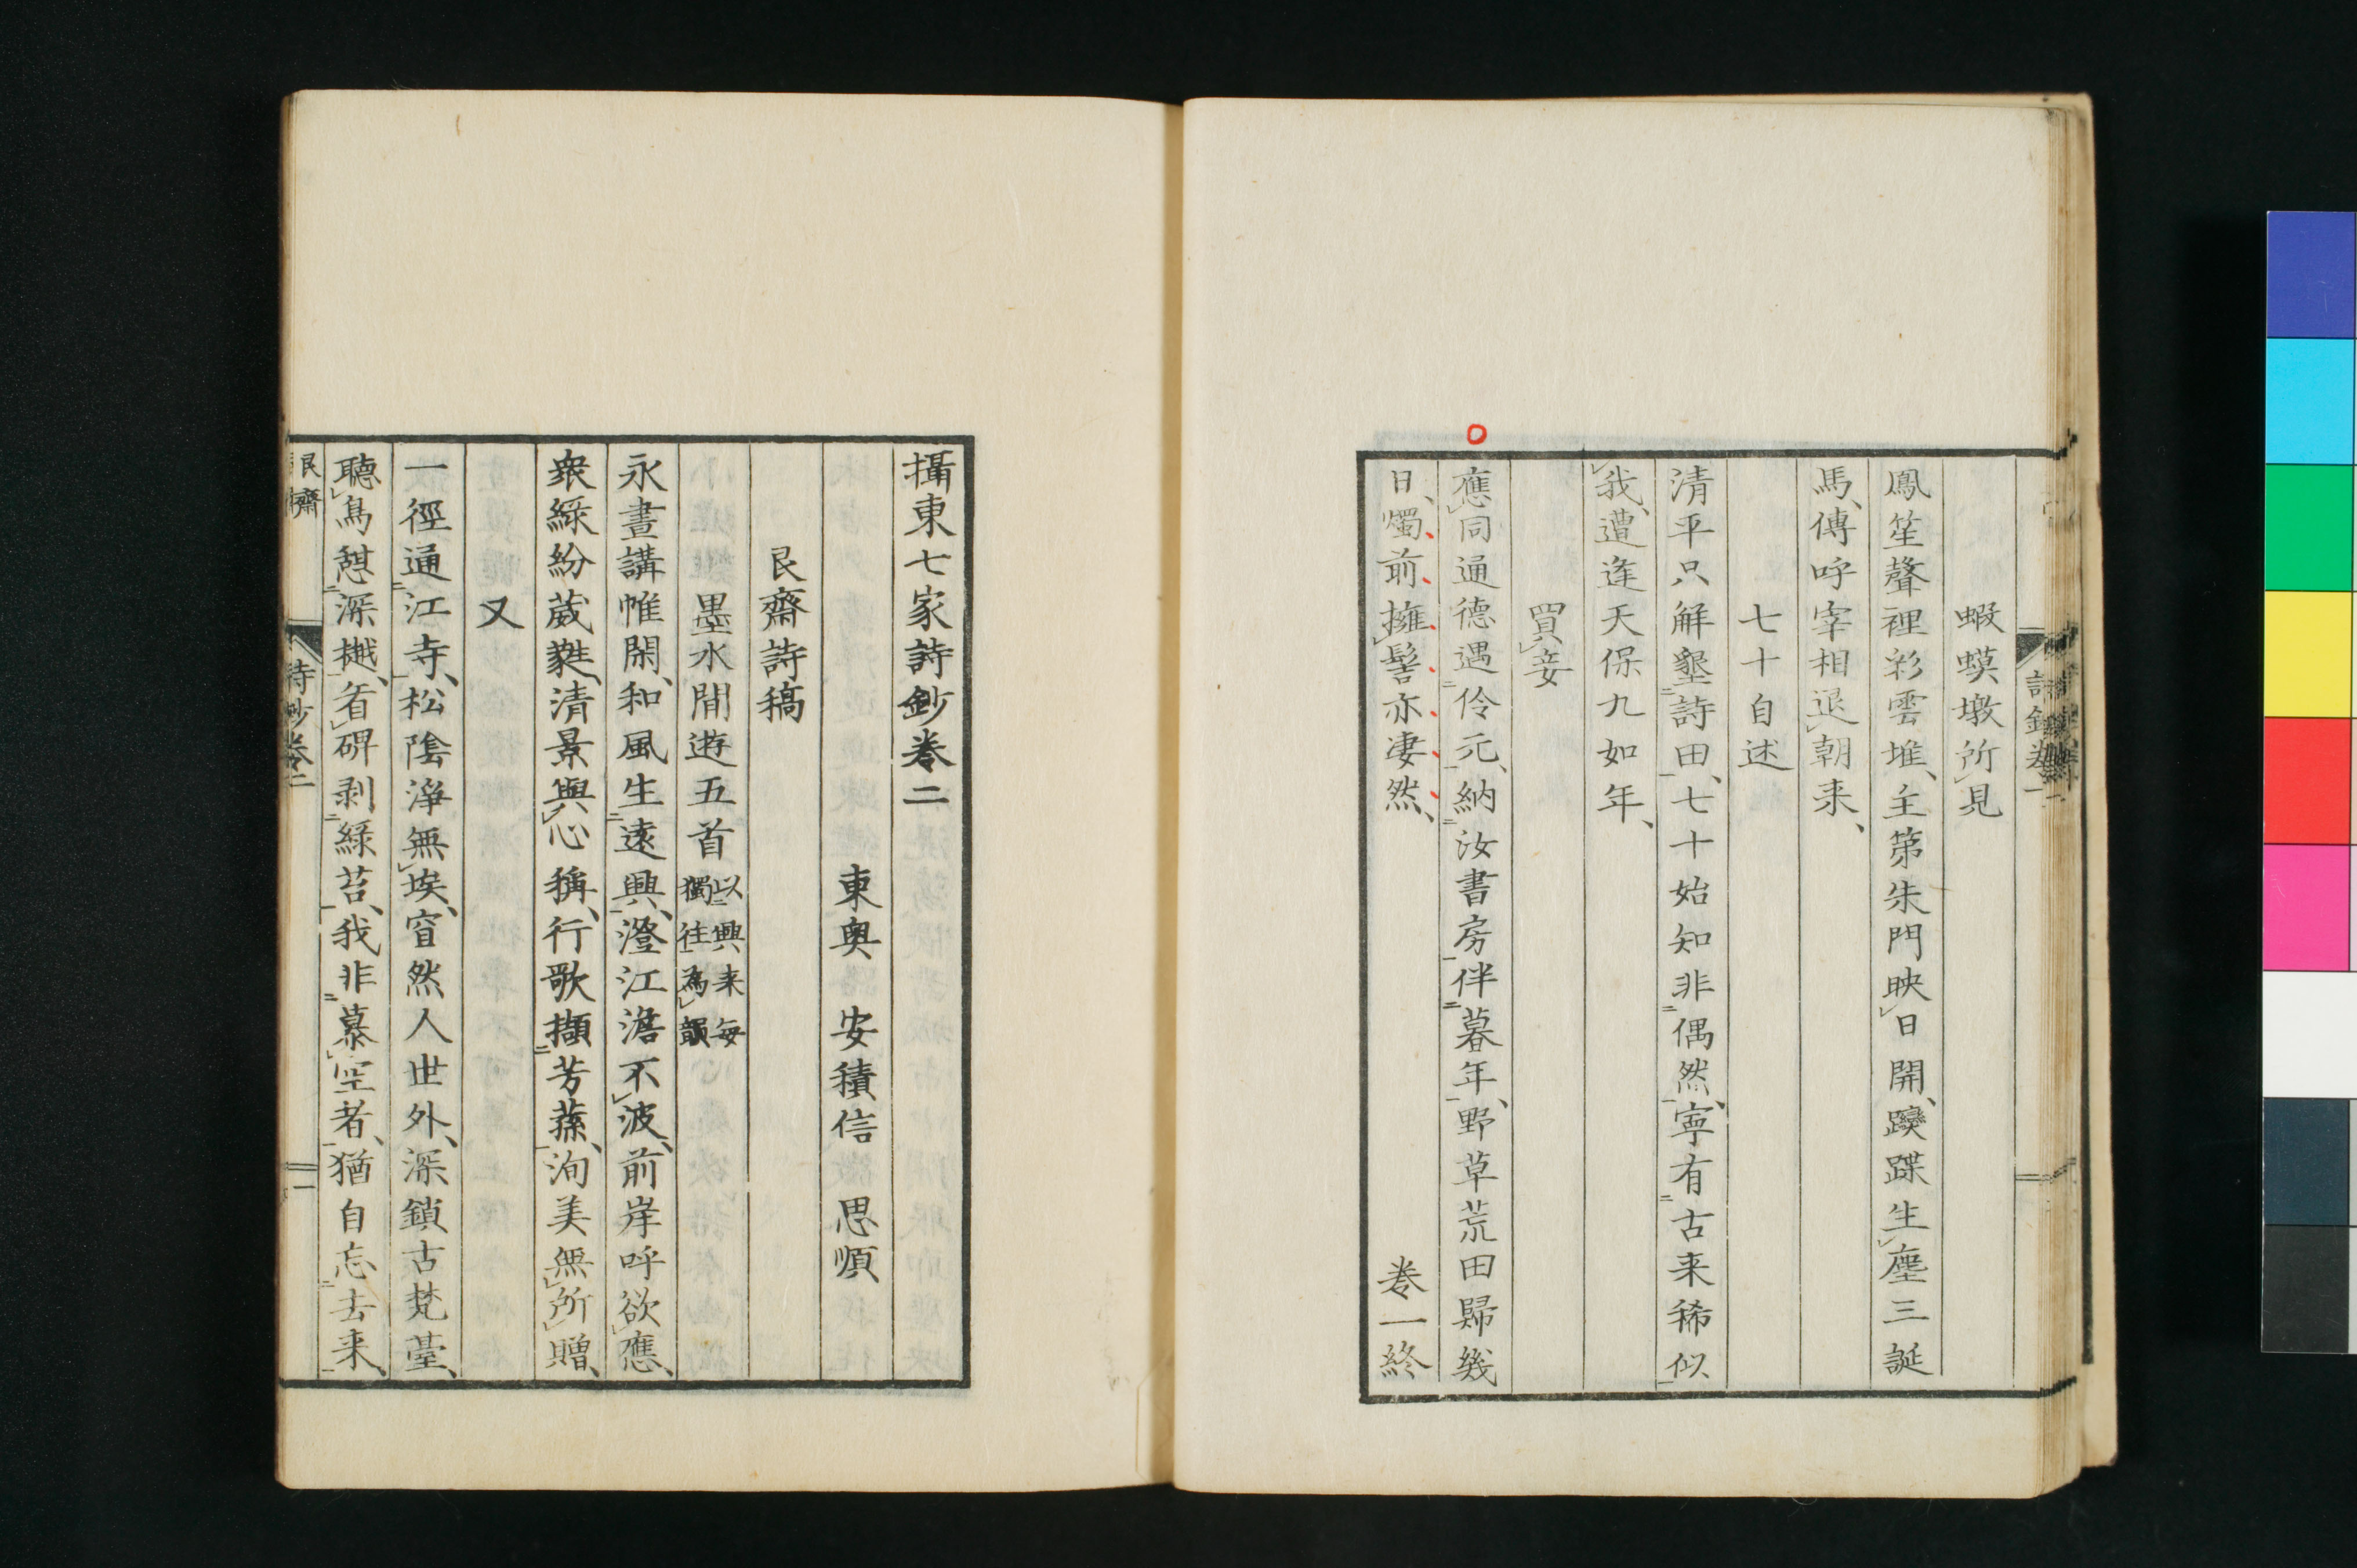 蝦蟆墩所見
鳳笙聲裡彩雲堆、主第朱門映日開、躞蹀生塵三誕
馬、傳呼宰相退朝来、
七十自述
清平只解墾詩田、七十始知非偶然、寧有古来稀似
我、遭逢天保九如年、
買妾
應同通德遇伶元、納汝書房伴暮年、野草荒田歸幾
日、燭前擁髻亦凄然、
卷一終
攝東七家詩鈔卷二
東奥 安積信 思順
艮齋詩稿
墨水閒遊五首
以興来每
獨往為韻
永晝講帷閑、和風生遠興、澄江澹不波、前岸呼欲應、
衆綵紛葳蕤、清景與心稱、行歌擷芳蓀、洵美無所贈、
又
一徑通江寺、松陰淨無埃、窅然人世外、深鎖古梵臺、
聽鳥憇深樾、看碑剥緑苔、我非慕空者、猶自忘去来、